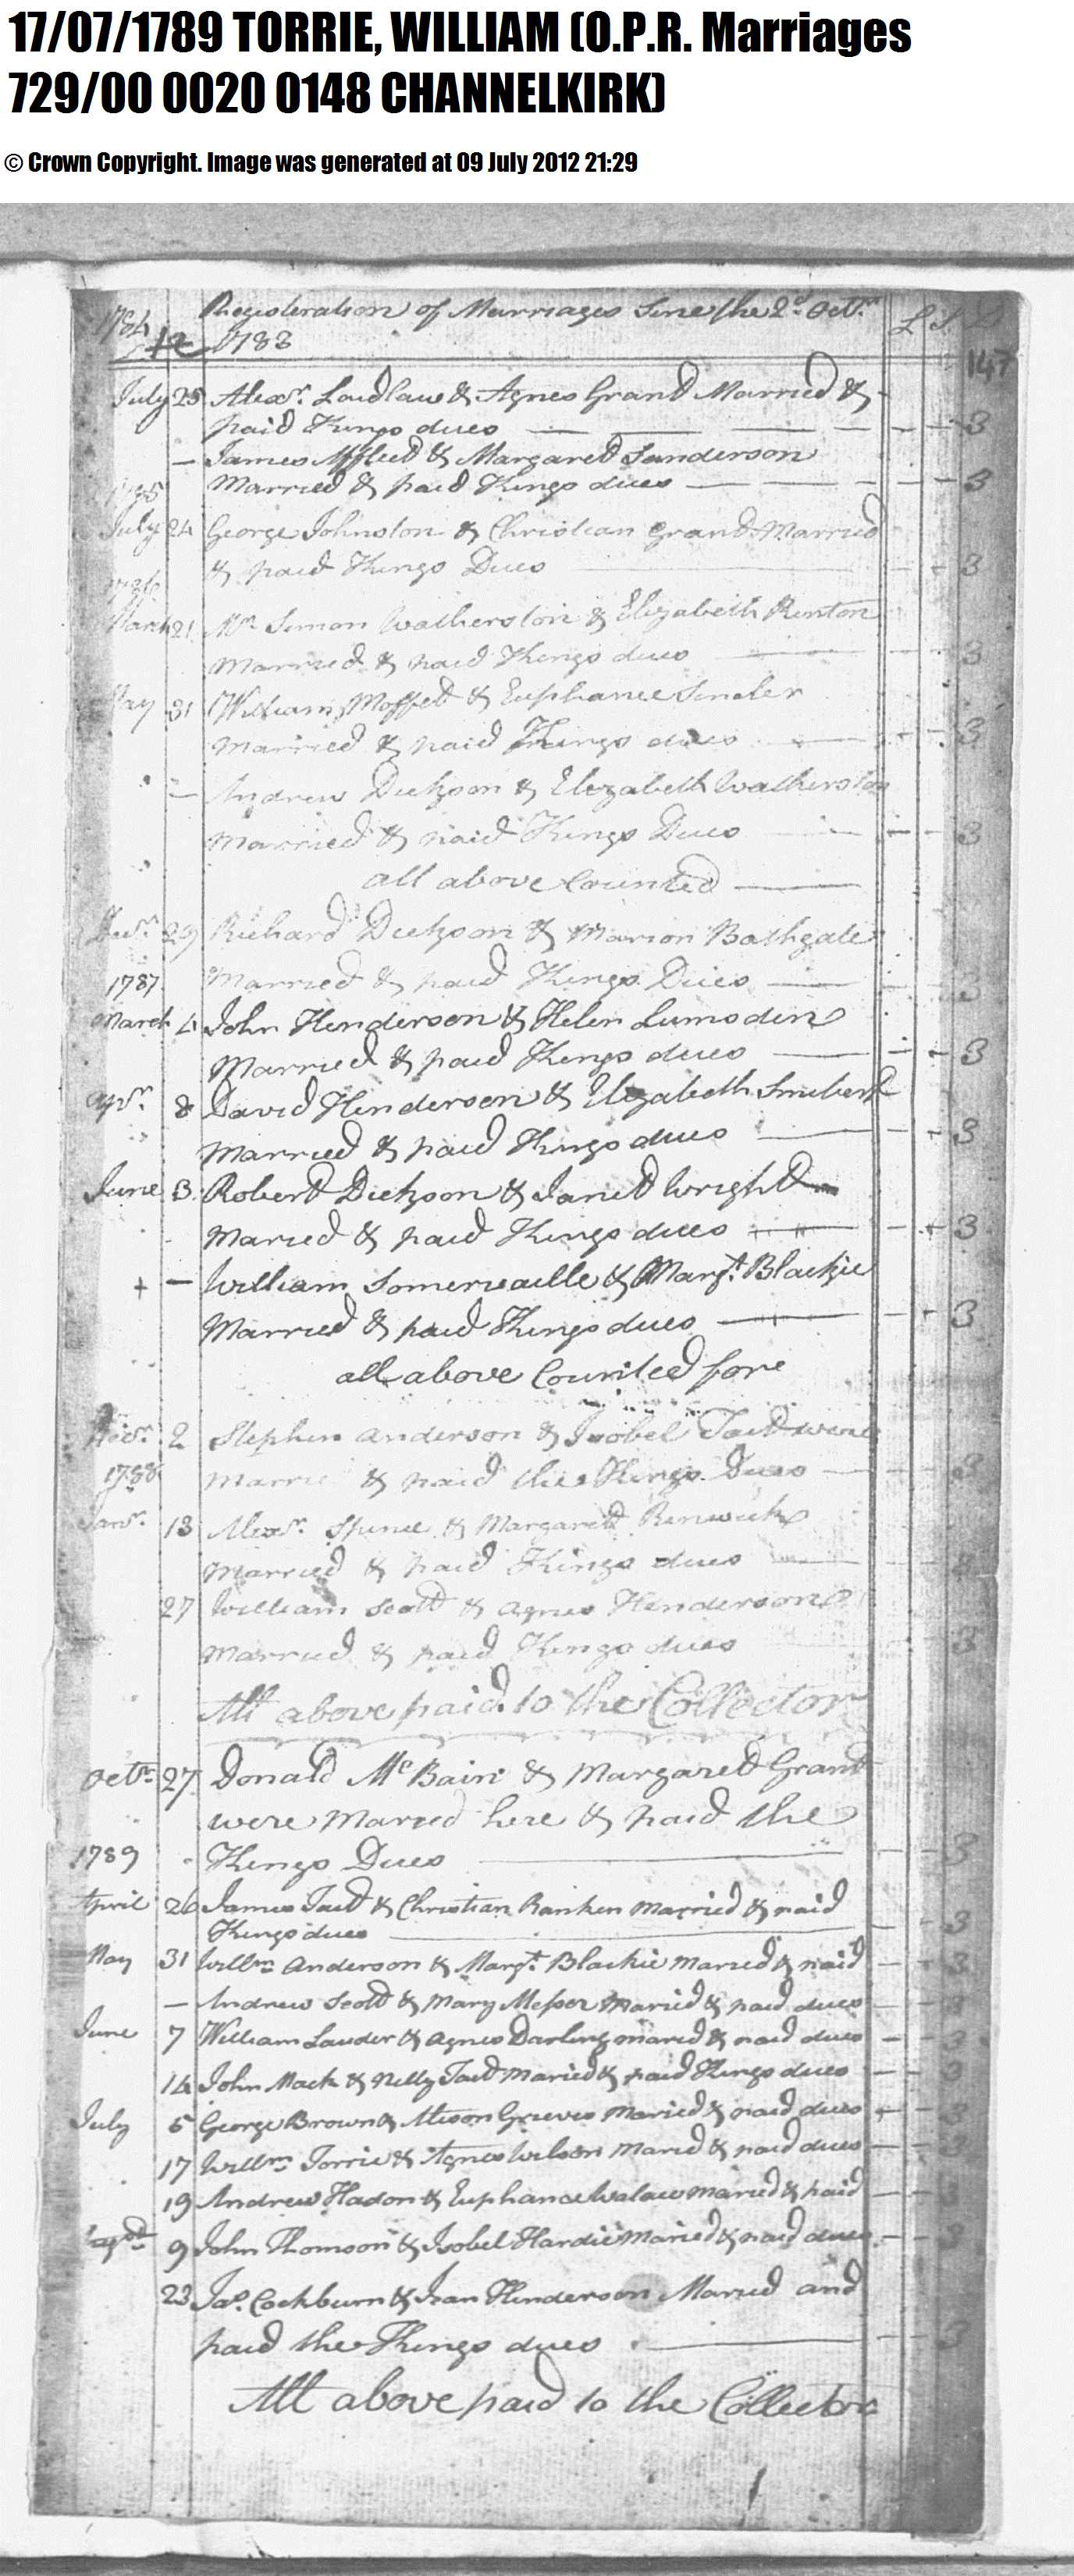 17/07/1789 TORRIE, WILLIAM (O.P.R. Marriages
729/00 0020 0148 CHANNELKIRK)
© Crown Copyright. Image was generated at 09 July 2012 21:29
1784 Registeration of Marriages Sine the 2d Octr L S D
1783
147
July 25 Alexr. Laidlaw & Agnes Grand Married &
paid Kings dues 3
— James Affleed & Margared Sanderson
Married & paid Kings dues 3
1785
July 24 George Johnston & Christian Grand Married
& paid Kings Dues 3
1786
March 21 Mr Simon Watherston & Elizabeth Renton
Married & paid Kings dues 3
May 31 William Moffed & Euphance Sincler
Married & paid Kings dues 3
— Andrew Dickson & Elezabeth Watherston
Married & paid Kings Dues 3
all above Counted
29 Richard Dickson & Marion Bathgate
1787 Married & paid Kings Dues 3
March 4 John Henderson & Helen Lumsden
Married & paid Kings dues 3
Apr. 8 David Henderson & Elezabeth Smibert
Married & paid Kings dues 3
June 3 Robert Dickson & Janed Wright
Maried & paid Kings dues 3
+ — William Somervaille & Margt. Blackie
Married & paid Kings dues 3
all above Counted fore
Novr. 2 Stephen Anderson & Isobel Taid were
1788 Marrie & paid the Kings Dues 3
Janr. 13 Alexr. Spence & Margared Renwick
Married & paid Kings dues
27 William Scott & Agnes Henderson
Married & paid Kings dues 3
All above paid to the Collector
Octr 27 Donald McBain & Margared Grant
were Maried here & paid the
1789 Kings Dues 3
April 26 James Taid & Christian Rankin Married & paid
Kings dues 3
May 31 Willm Anderson & Margt. Blackie Maried & paid 3
— Andrew Scott & Mary Messer Maried & paid dues 3
June 7 William Lauder & Agnes Darling maried & paid dues 3
14 John Mack & Nelly Taid Maried & paid Kings dues 3
July 5 George Brown & Alison Grieves Maried & paid dues 3
17 Willm Torrie & Agnes Wilson Maried & paid dues 3
19 Andrew Hadon & Euphance Walaw maried & paid 3
Agust 9 John Thomson & Isobel Hardie Maried & paid dues 3
23 Jas. Cockburn & Jean Henderson Maried and
paid the Kings dues 3
All above paid to the Collector